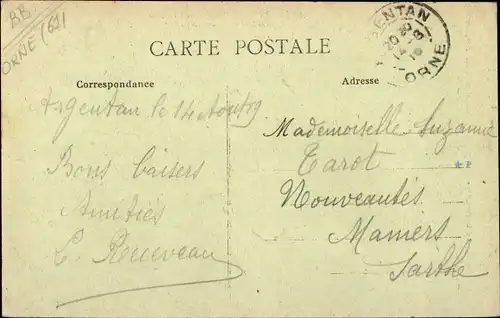 BB
ORNE (61)
CARTE POSTALE
ARGENTAN
20 30
14 - 8
ORNE
Correspondance
Adresse
Argentan le 14 Aout 19
Bons baisers
Amitiés
Mademoiselle Suzanne
Tarot
Nouveautés
Mamers
Sarthe